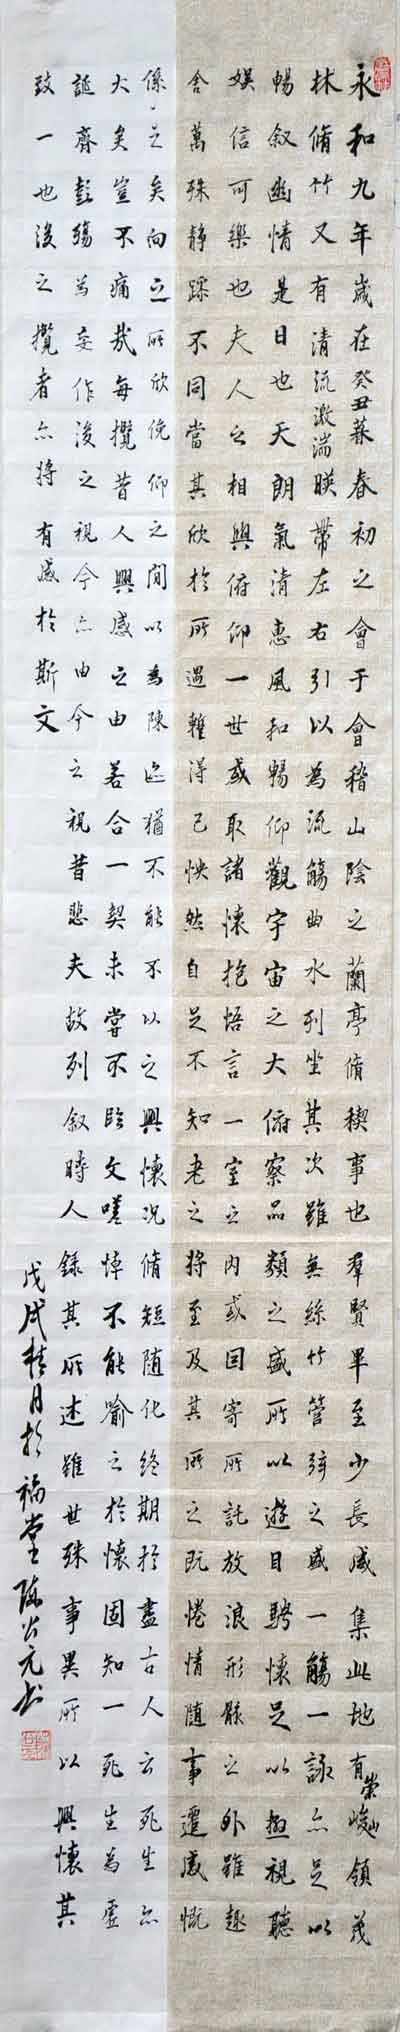 永和九年歲在癸丑暮春初之會于會稽山陰之蘭亭脩稧事也羣賢畢至少長咸集此地有崇山峻領茂
林脩竹又有清流激湍暎帶左右引以為流觴曲水列坐其次雖無絲竹管弦之盛一觴一詠亦足以
暢叙幽情是日也天朗氣清惠風和暢仰觀宇宙之大俯察品類之盛所以遊目騁懷足以極視聽
娛信可樂也夫人之相與俯仰一世或取諸懷抱悟言一室之內或因寄所託放浪形骸之外雖趣
舍萬殊静躁不同當其欣於所遇蹔得己怏然自足不知老之將至及其所之既惓情隨事遷感慨
係之矣向之所欣俛仰之間以為陳迹猶不能不以之興懷況脩短隨化終期於盡古人云死生亦
大矣豈不痛哉每攬昔人興感之由若合一契未嘗不臨文嗟悼不能喻之於懷固知一死生為虛
誕齊彭殤為妄作後之視今亦由今之視昔悲夫故列叙時人錄其所述雖世殊事異所以興懷其
致一也後之攬者亦將有感於斯文
戊戌桂月於福堂陳公元書